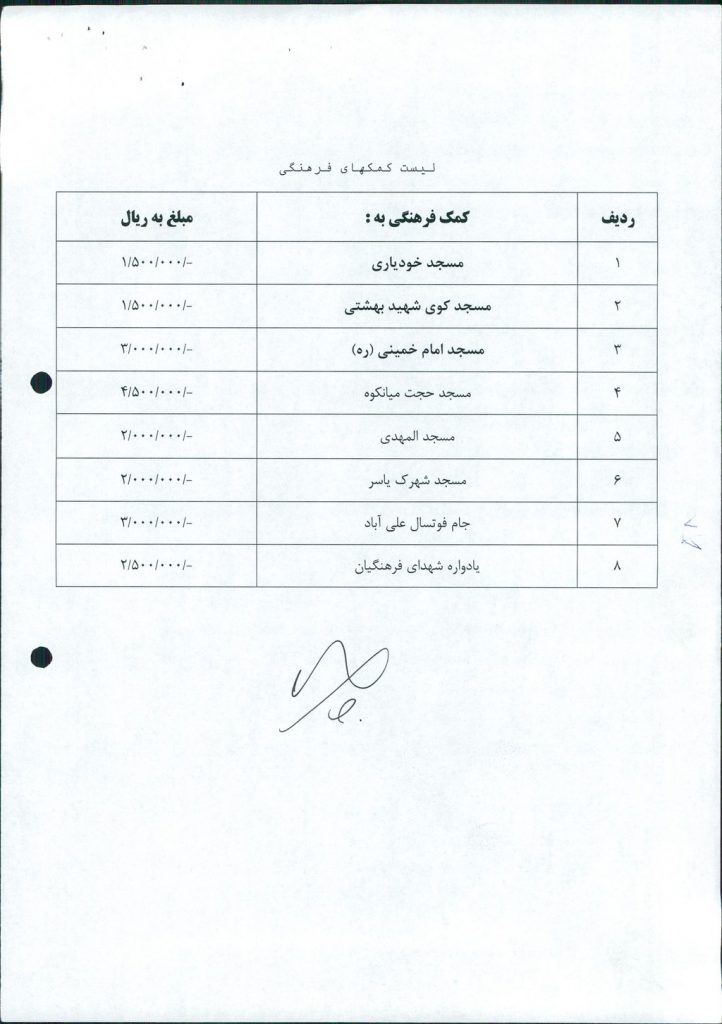 لیست کمکهای فرهنگی
ردیف کمک فرهنگی به : مبلغ به ریال
۱ مسجد خودیاری ۱/۵۰۰/۰۰۰/-
۲ مسجد کوی شهید بهشتی ۱/۵۰۰/۰۰۰/-
۳ مسجد امام خمینی (ره) ۳/۰۰۰/۰۰۰/-
۴ مسجد حجت میانکوه ۴/۵۰۰/۰۰۰/-
۵ مسجد المهدی ۲/۰۰۰/۰۰۰/-
۶ مسجد شهرک یاسر ۲/۰۰۰/۰۰۰/-
۷ جام فوتسال علی آباد ۳/۰۰۰/۰۰۰/-
۸ یادواره شهدای فرهنگیان ۲/۵۰۰/۰۰۰/-